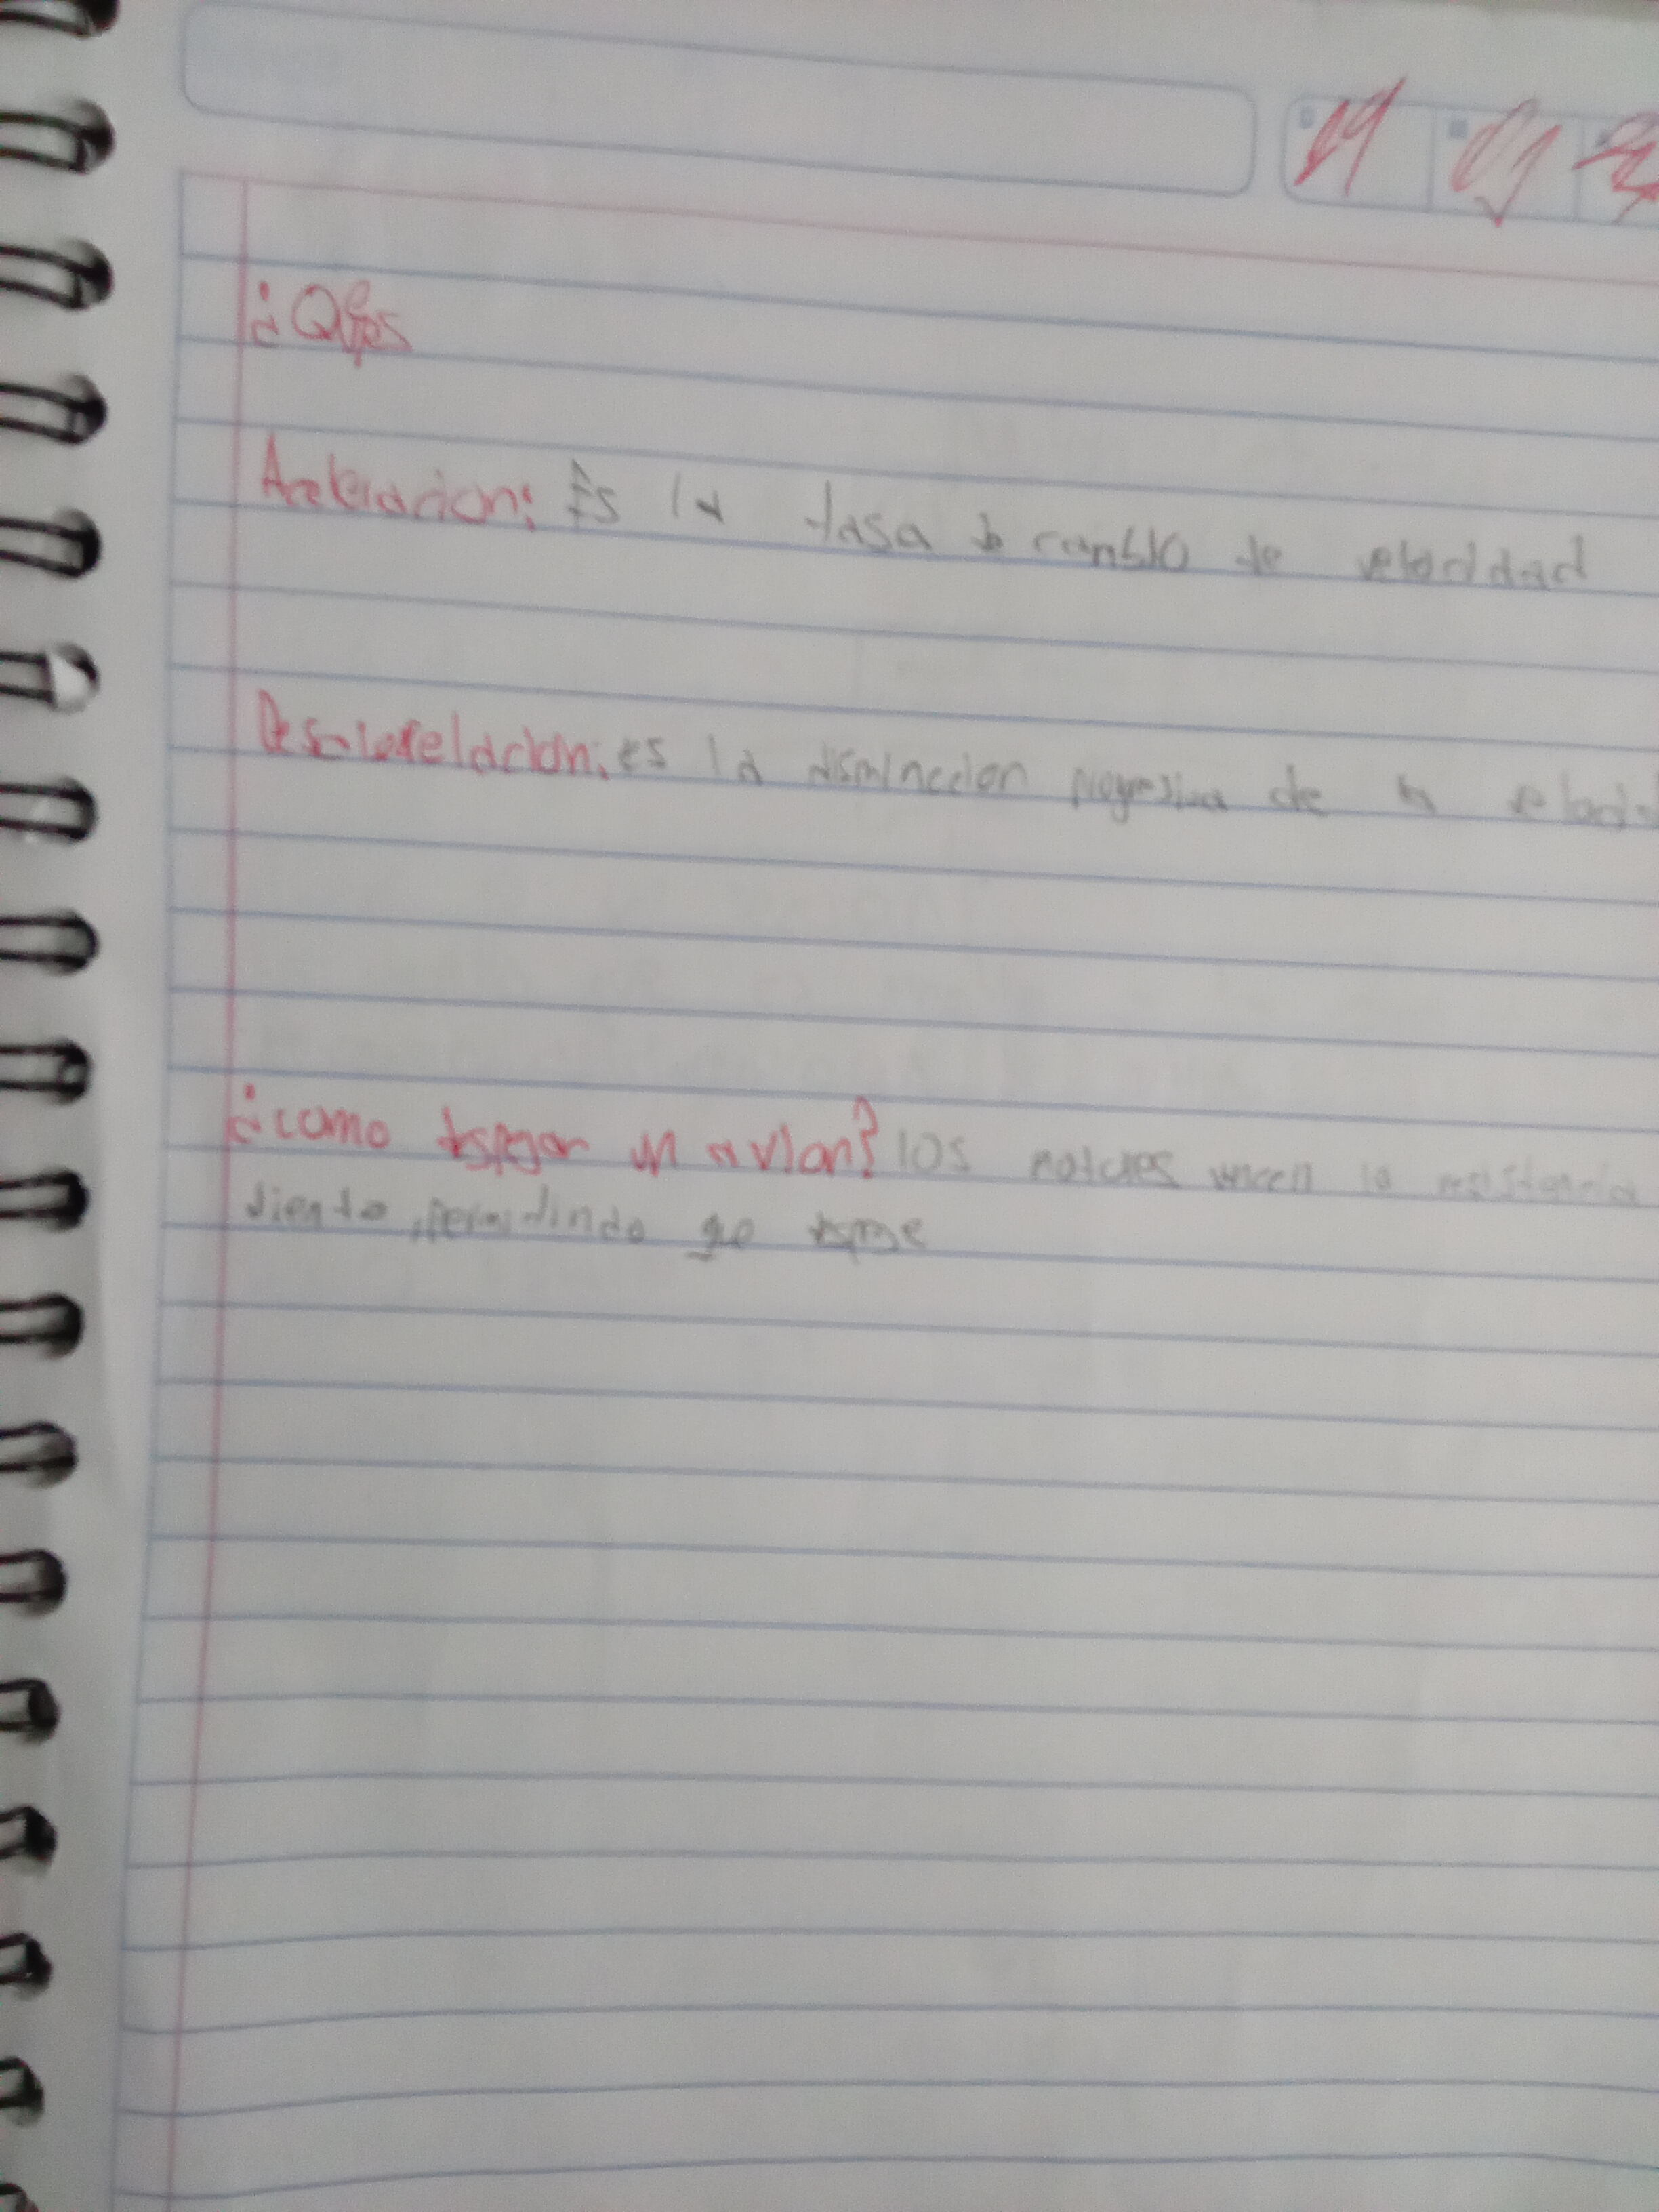 19
¿Q es
Aceleracion: Es la tasa de cambio de velocidad
Desaloreelacion: es la disminucion progresiva de la
¿como despegar un avion? los motores vncen la resistencia
viento, permitindo que